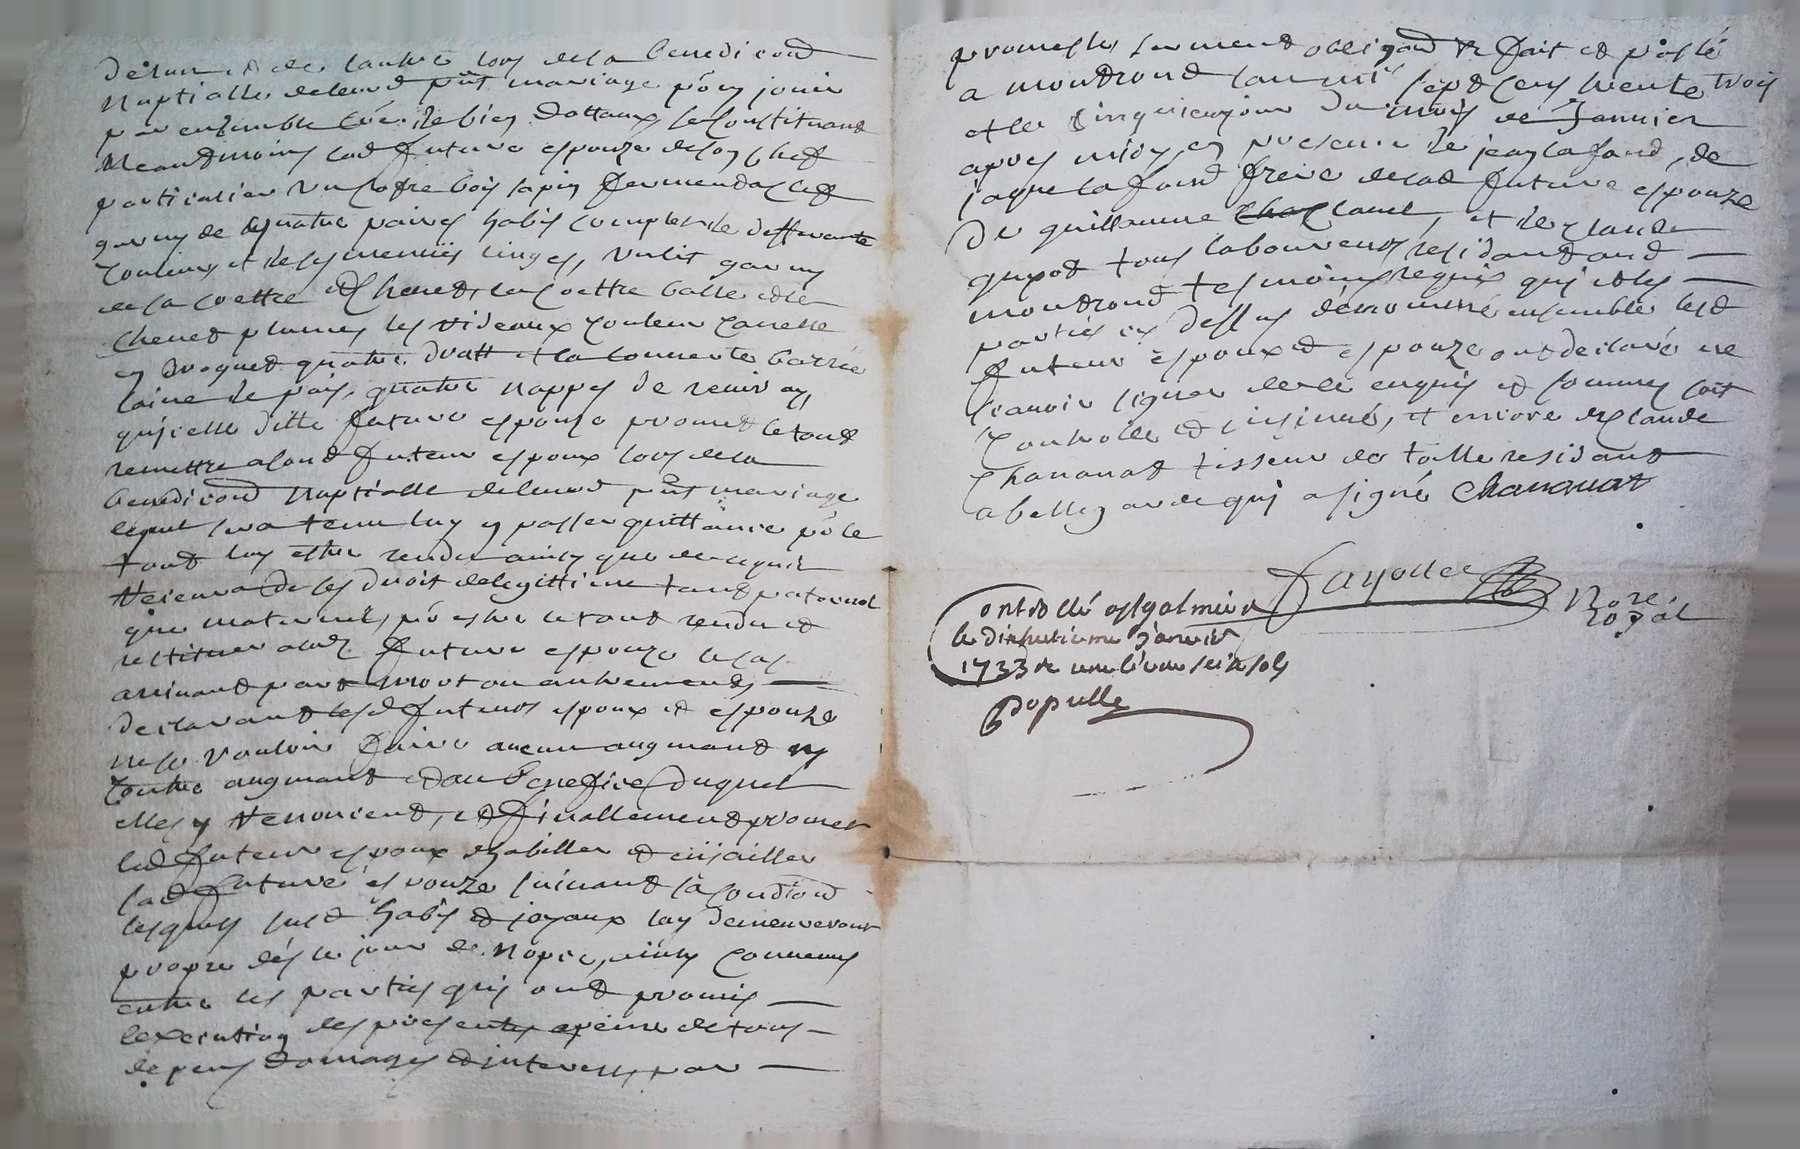 de lun et de lautre lors de la benediond
nuptialle de leurd pnt mariage por jouir
par ensemble led. bien dottaux se Constituant
Neandmoins lad future espouze de son chef
particulier un cofre bois sapin fermend a clef
garny de quatre paires habis complet de differante
Couleurs et de ses menus linges, un lit garny
de sa coettre et Chevet, la coettre balle et le
Chevet plumes les rideaux Couleur
quatre dratt et la couverte barrée
laine de païs, quatre nappes de
quicelle ditte future espouse promet le toud
remettre aſond futeur espoux lors de la
benedicond Nuptialle de leurd pnt mariage
lequel sera tenu luy y passer quittance por le
toud luy estre rendu ainsy que de
de ses droit de legittime tand paternel
que maternel, por estre le toud rendu et
restituer alad future espouze le cas
arrivand pard mort ou autremend
declarant lesd futeurs espoux et espouze
ne se vouloir faire aucun augmand ny
Contre augmand et au benefice duquel
elles y Renoncent, et finallemend promet
led futeur espoux dhabiller et enjailler
lad future espouze suivand sa Condiond
lesquels susd habis et joyaux luy demeureront
propre dès le jour de Nopce, ainsy Convenus
entre les parties quy ond promis
lexecution des presentes a peine de tous
depens domages et interests par
promesses serment obligaond & fait et passé
a mondrond lan mil sept cens trente trois
et le cinquieme jour du mois de Janvier
apres midy en presence de jean lafond, de
jaque lafond frere de lad future espouze
de guillaume Clavel, et de Claude
guyot tous laboureurs residand aud
mondrond tesmoins requis quy et les
parties cy dessus denommé ensemble lesd
futeur espoux et espouze ont declaré ne
scavoir signer de ce enquis et sommes soit
Controlle et insinué, et encore de Claude
Chananat tisseur de toille residant
a bellegarde quy a signé Chananat
Fayolle Nore
royal
Controllé a st galmier
le dixhutieme janvier
1733 R une livre seize sols
Populle